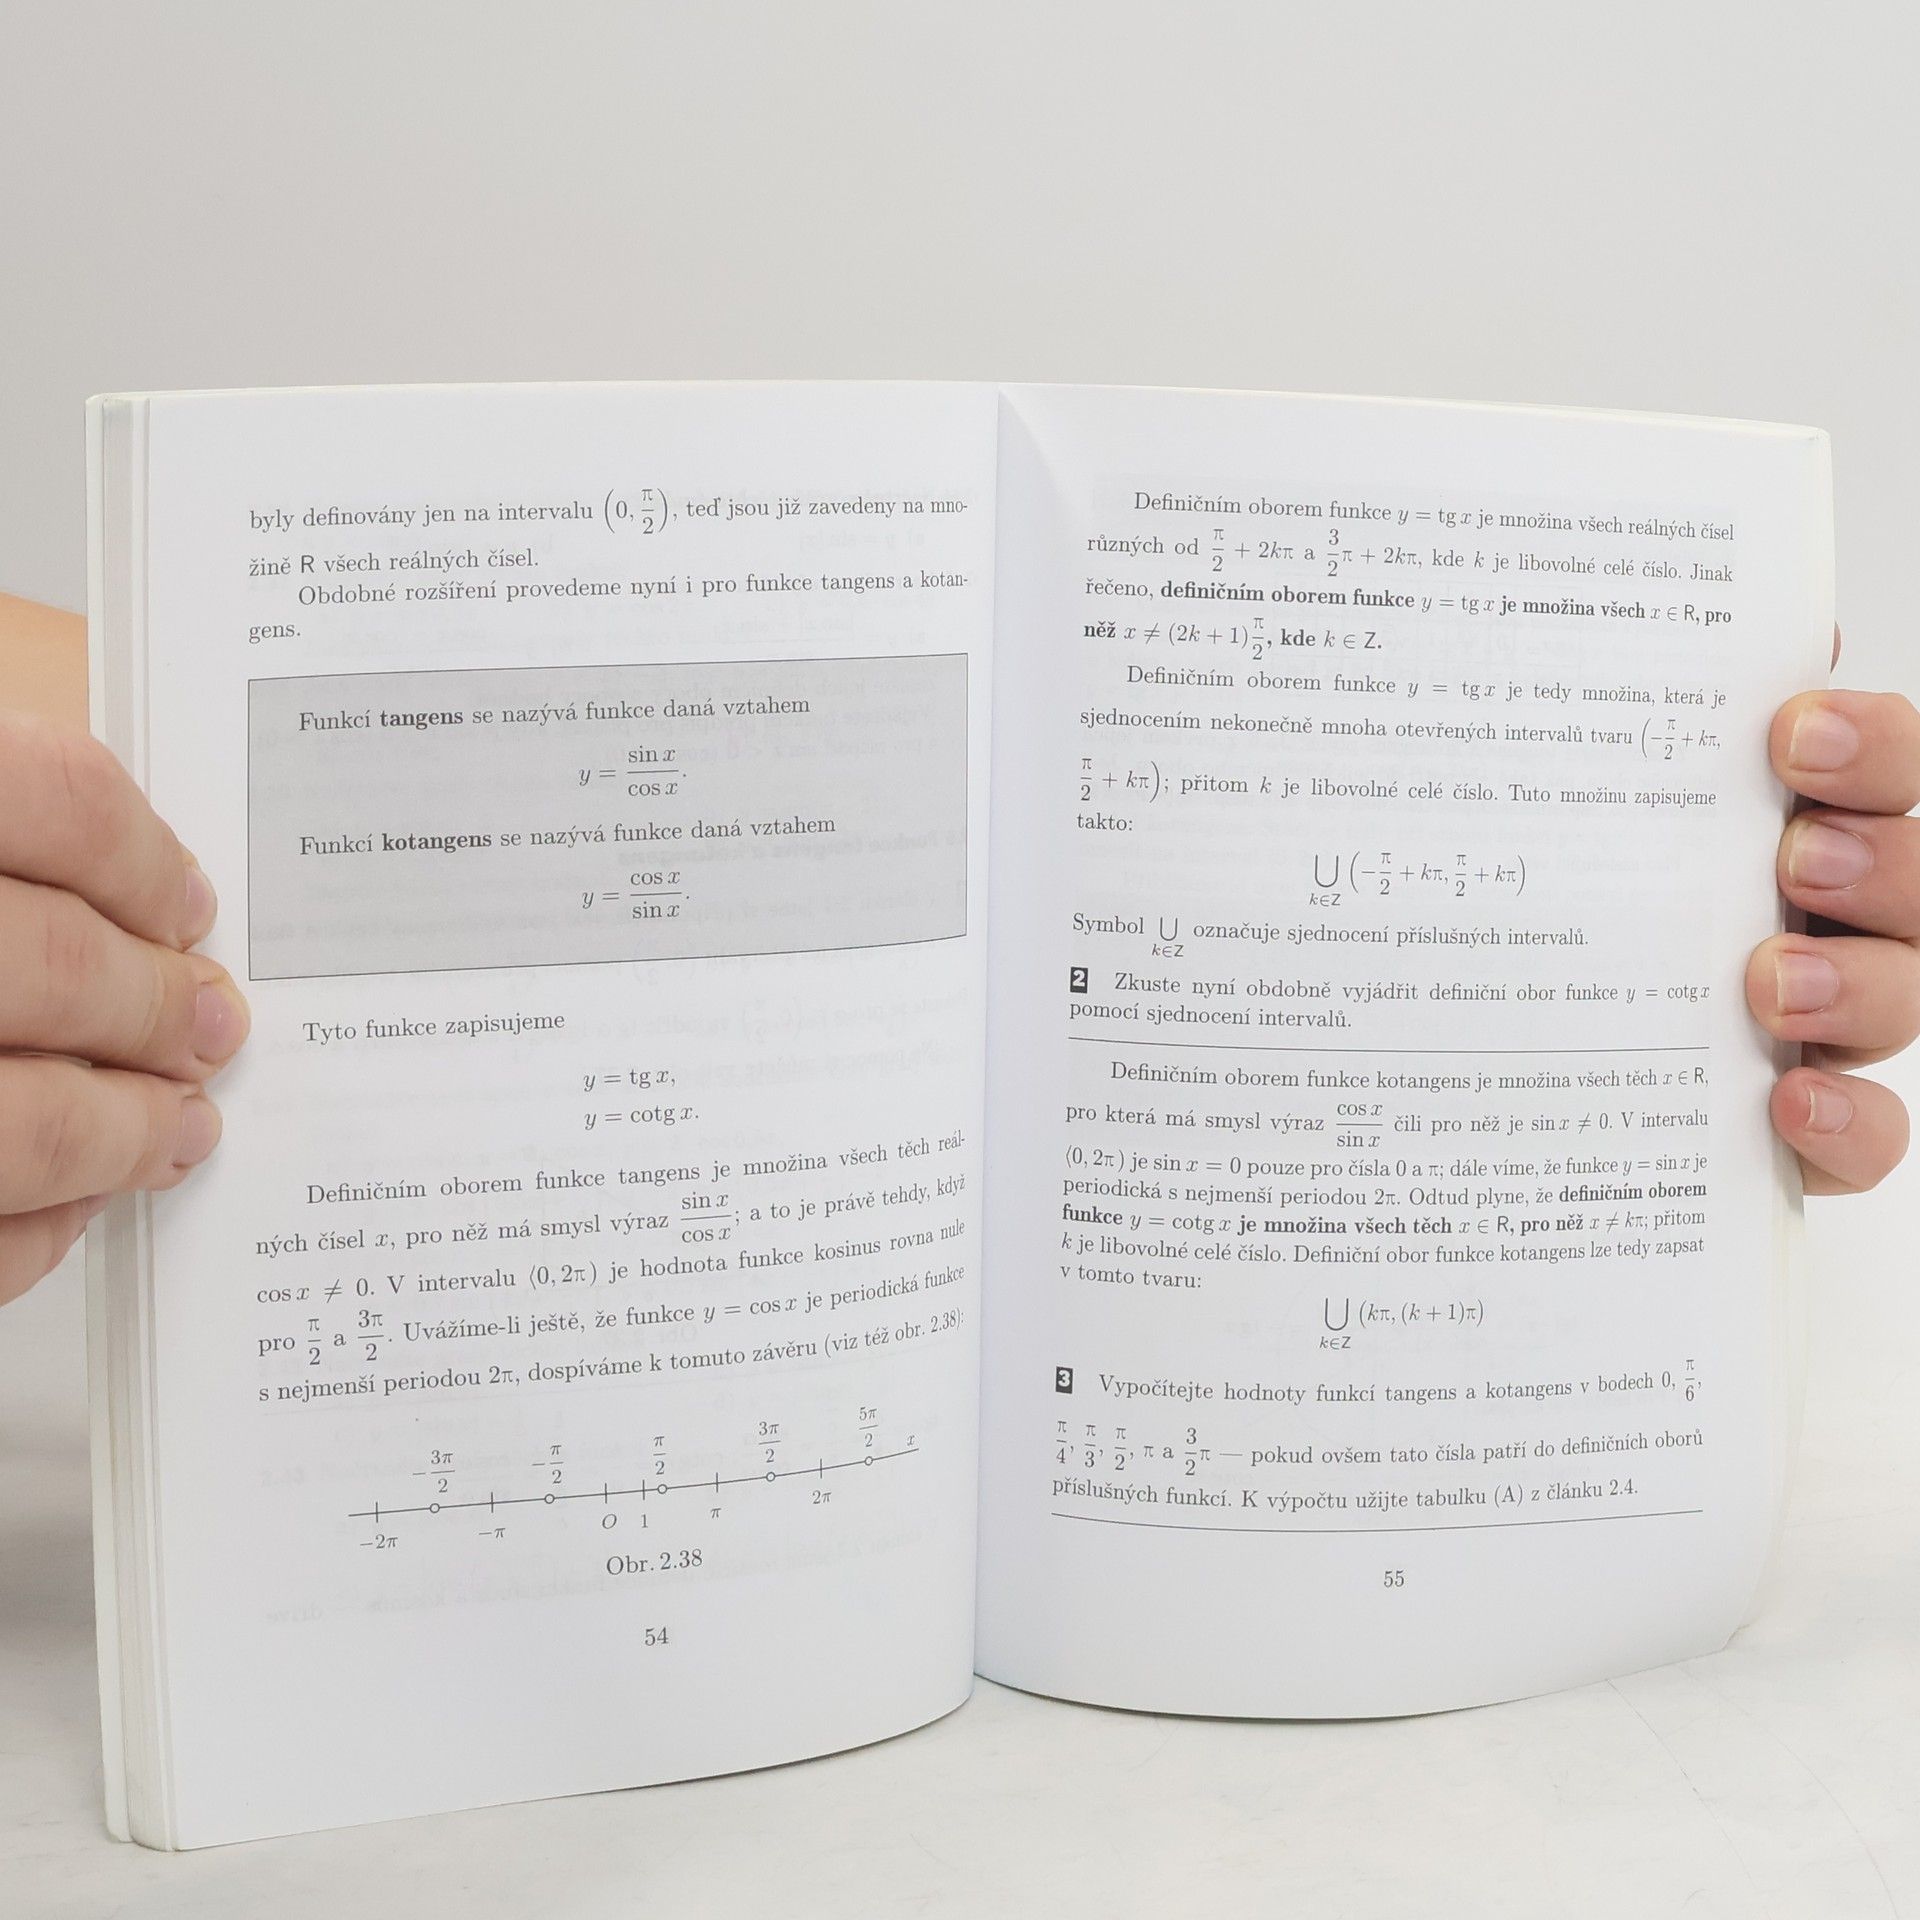 byly definovány jen na intervalu (0, π/2), teď jsou již zavedeny na mno-
žině R všech reálných čísel.
Obdobné rozšíření provedeme nyní i pro funkce tangens a kotan-
gens.
Funkcí tangens se nazývá funkce daná vztahem
y = sin x / cos x.
Funkcí kotangens se nazývá funkce daná vztahem
y = cos x / sin x.
Tyto funkce zapisujeme
y = tg x,
y = cotg x.
Definičním oborem funkce tangens je množina všech těch reál-
ných čísel x, pro něž má smysl výraz sin x / cos x; a to je právě tehdy, když
cos x ≠ 0. V intervalu ⟨0, 2π) je hodnota funkce kosinus rovna nule
pro π/2 a 3π/2. Uvážíme-li ještě, že funkce y = cos x je periodická funkce
s nejmenší periodou 2π, dospíváme k tomuto závěru (viz též obr. 2.38):
−3π/2 −π/2 π/2 3π/2 5π/2 x
−2π −π O 1 π 2π
Obr. 2.38
54
Definičním oborem funkce y = tg x je množina všech reálných čísel
různých od π/2 + 2kπ a 3/2 π + 2kπ, kde k je libovolné celé číslo. Jinak
řečeno, definičním oborem funkce y = tg x je množina všech x ∈ R, pro
něž x ≠ (2k + 1) π/2, kde k ∈ Z.
Definičním oborem funkce y = tg x je tedy množina, která je
sjednocením nekonečně mnoha otevřených intervalů tvaru (−π/2 + kπ,
π/2 + kπ); přitom k je libovolné celé číslo. Tuto množinu zapisujeme
takto:
⋃ k∈Z (−π/2 + kπ, π/2 + kπ)
Symbol ⋃ k∈Z označuje sjednocení příslušných intervalů.
2 Zkuste nyní obdobně vyjádřit definiční obor funkce y = cotg x
pomocí sjednocení intervalů.
Definičním oborem funkce kotangens je množina všech těch x ∈ R,
pro která má smysl výraz cos x / sin x čili pro něž je sin x ≠ 0. V intervalu
⟨0, 2π) je sin x = 0 pouze pro čísla 0 a π; dále víme, že funkce y = sin x je
periodická s nejmenší periodou 2π. Odtud plyne, že definičním oborem
funkce y = cotg x je množina všech těch x ∈ R, pro něž x ≠ kπ; přitom
k je libovolné celé číslo. Definiční obor funkce kotangens lze tedy zapsat
v tomto tvaru:
⋃ k∈Z (kπ, (k + 1)π)
3 Vypočítejte hodnoty funkcí tangens a kotangens v bodech 0, π/6,
π/4, π/3, π/2, π a 3/2 π — pokud ovšem tato čísla patří do definičních oborů
příslušných funkcí. K výpočtu užijte tabulku (A) z článku 2.4.
55